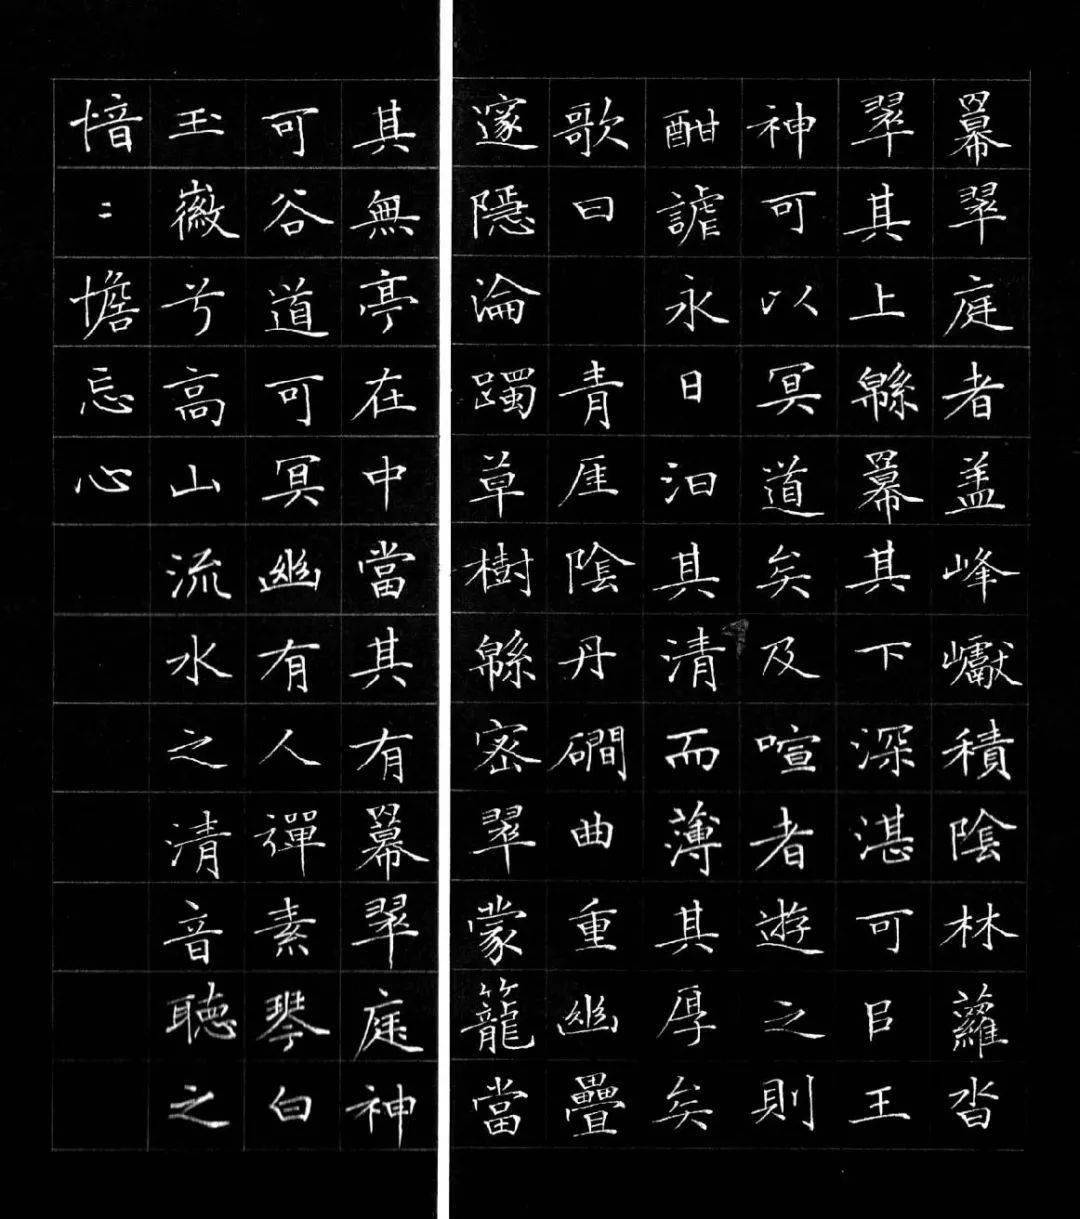 羃翠庭者盖峰巘積陰林蘿沓
翠其上緜羃其下深湛可㠯王
神可以冥道矣及喧者遊之則
酣謔永日汩其清而薄其厚矣
歌曰 青厓陰丹磵曲重幽疊
邃隱淪躅草樹緜密翠蒙籠當
其無亭在中當其有羃翠庭神
可谷道可冥幽有人禪素琴白
玉徽兮高山流水之清音聽之
愔〻憺忘心